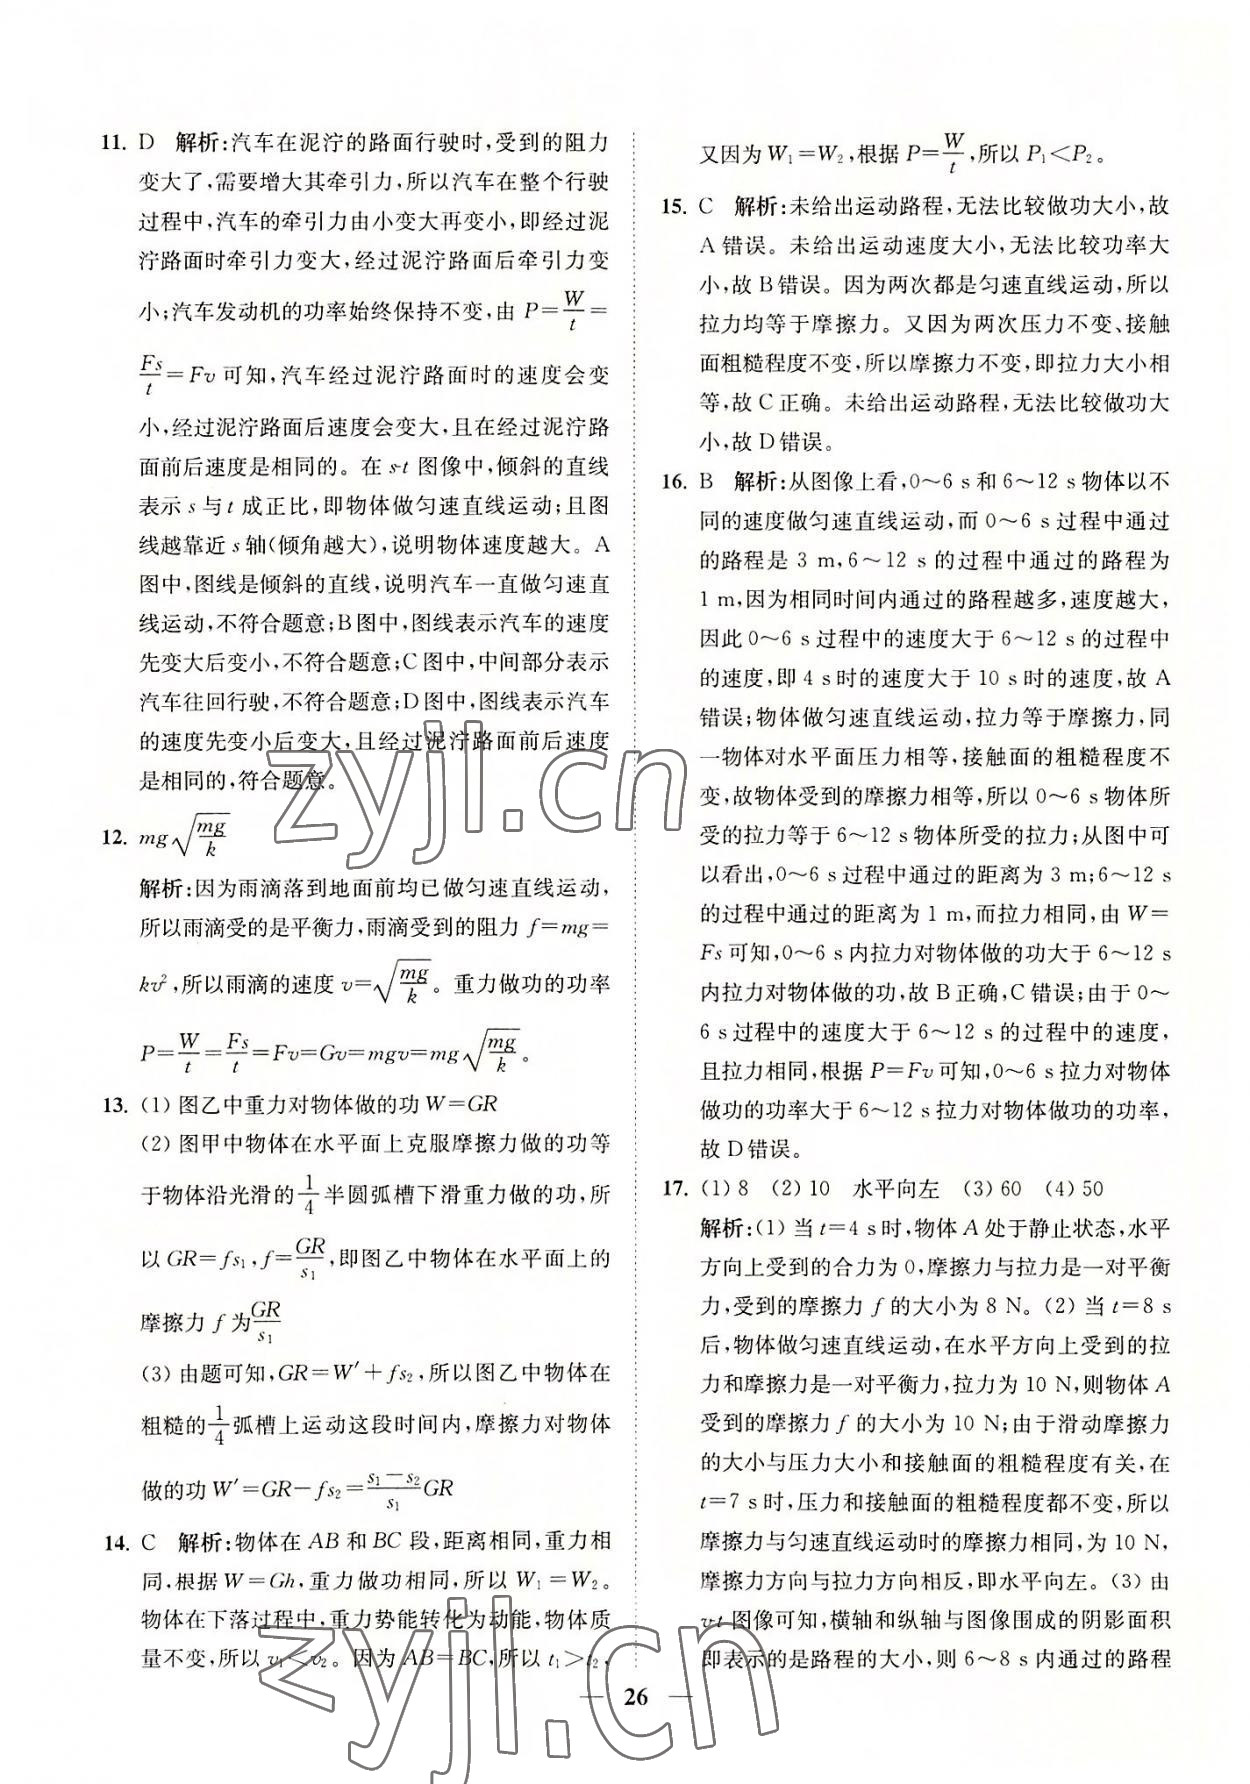 11. D 解析:汽车在泥泞的路面行驶时,受到的阻力
变大了,需要增大其牵引力,所以汽车在整个行驶
过程中,汽车的牵引力由小变大再变小,即经过泥
泞路面时牵引力变大,经过泥泞路面后牵引力变
小;汽车发动机的功率始终保持不变,由 P=W/t=
Fs/t=Fv 可知,汽车经过泥泞路面时的速度会变
小,经过泥泞路面后速度会变大,且在经过泥泞路
面前后速度是相同的。在 s-t 图像中,倾斜的直线
表示 s 与 t 成正比,即物体做匀速直线运动;且图
线越靠近 s 轴(倾角越大),说明物体速度越大。A
图中,图线是倾斜的直线,说明汽车一直做匀速直
线运动,不符合题意;B 图中,图线表示汽车的速度
先变大后变小,不符合题意;C 图中,中间部分表示
汽车往回行驶,不符合题意;D 图中,图线表示汽车
的速度先变小后变大,且经过泥泞路面前后速度
是相同的,符合题意。
12. mg√(mg/k)
解析:因为雨滴落到地面前均已做匀速直线运动,
所以雨滴受的是平衡力,雨滴受到的阻力 f=mg=
kv²,所以雨滴的速度 v=√(mg/k)。重力做功的功率
P=W/t=Fs/t=Fv=Gv=mgv=mg√(mg/k)。
13. (1) 图乙中重力对物体做的功 W=GR
(2) 图甲中物体在水平面上克服摩擦力做的功等
于物体沿光滑的1/4半圆弧槽下滑重力做的功,所
以 GR=fs₁,f=GR/s₁,即图乙中物体在水平面上的
摩擦力 f 为GR/s₁
(3) 由题可知,GR=W′+fs₂,所以图乙中物体在
粗糙的1/4弧槽上运动这段时间内,摩擦力对物体
做的功 W′=GR-fs₂=(s₁-s₂)/s₁ GR
14. C 解析:物体在 AB 和 BC 段,距离相同,重力相
同,根据 W=Gh,重力做功相同,所以 W₁=W₂。
物体在下落过程中,重力势能转化为动能,物体质
量不变,所以 v₁<v₂。因为 AB=BC,所以 t₁>t₂,
又因为 W₁=W₂,根据 P=W/t,所以 P₁<P₂。
15. C 解析:未给出运动路程,无法比较做功大小,故
A 错误。未给出运动速度大小,无法比较功率大
小,故 B 错误。因为两次都是匀速直线运动,所以
拉力均等于摩擦力。又因为两次压力不变、接触
面粗糙程度不变,所以摩擦力不变,即拉力大小相
等,故 C 正确。未给出运动路程,无法比较做功大
小,故 D 错误。
16. B 解析:从图像上看,0~6 s 和 6~12 s 物体以不
同的速度做匀速直线运动,而 0~6 s 过程中通过
的路程是 3 m,6~12 s 的过程中通过的路程为
1 m,因为相同时间内通过的路程越多,速度越大,
因此 0~6 s 过程中的速度大于 6~12 s 的过程中
的速度,即 4 s 时的速度大于 10 s 时的速度,故 A
错误;物体做匀速直线运动,拉力等于摩擦力,同
一物体对水平面压力相等,接触面的粗糙程度不
变,故物体受到的摩擦力相等,所以 0~6 s 物体所
受的拉力等于 6~12 s 物体所受的拉力;从图中可
以看出,0~6 s 过程中通过的距离为 3 m;6~12 s
的过程中通过的距离为 1 m,而拉力相同,由 W=
Fs 可知,0~6 s 内拉力对物体做的功大于 6~12 s
内拉力对物体做的功,故 B 正确,C 错误;由于 0~
6 s 过程中的速度大于 6~12 s 的过程中的速度,
且拉力相同,根据 P=Fv 可知,0~6 s 拉力对物体
做功的功率大于 6~12 s 拉力对物体做功的功率,
故 D 错误。
17. (1) 8 (2) 10 水平向左 (3) 60 (4) 50
解析:(1) 当 t=4 s 时,物体 A 处于静止状态,水平
方向上受到的合力为 0,摩擦力与拉力是一对平衡
力,受到的摩擦力 f 的大小为 8 N。(2) 当 t=8 s
后,物体做匀速直线运动,在水平方向上受到的拉
力和摩擦力是一对平衡力,拉力为 10 N,则物体 A
受到的摩擦力 f 的大小为 10 N;由于滑动摩擦力
的大小与压力大小和接触面的粗糙程度有关,在
t=7 s 时,压力和接触面的粗糙程度都不变,所以
摩擦力与匀速直线运动时的摩擦力相同,为 10 N,
摩擦力方向与拉力方向相反,即水平向左。(3) 由
v-t 图像可知,横轴和纵轴与图像围成的阴影面积
即表示的是路程的大小,则 6~8 s 内通过的路程
26
zyjl.cn
zyjl.cn